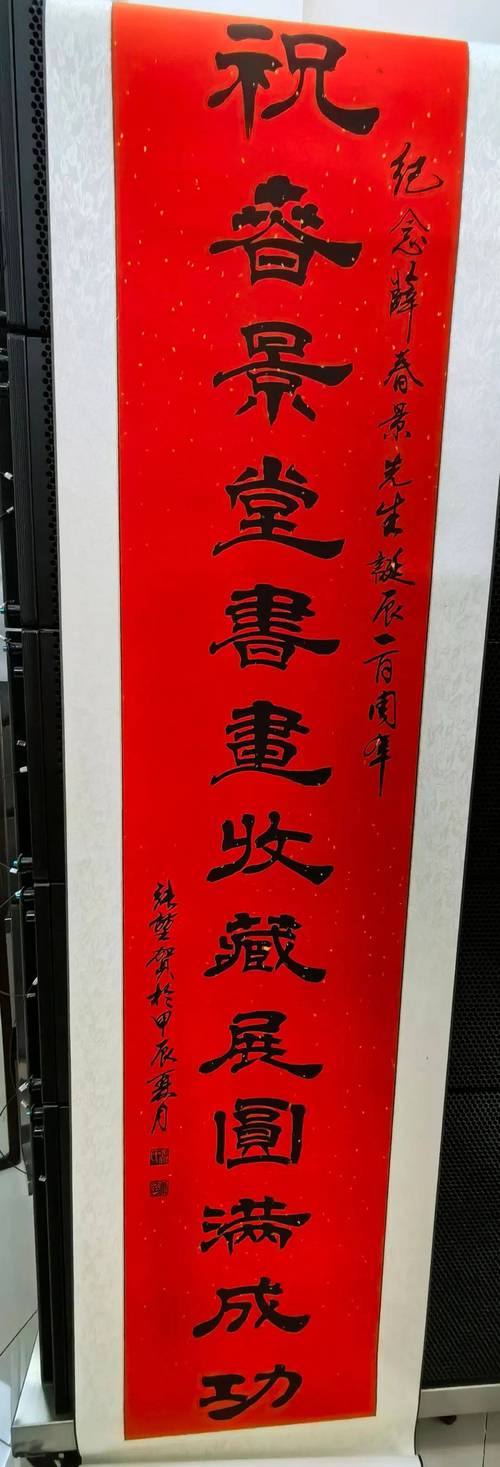 紀念薛春景先生誕辰一百周年
祝春景堂書畫收藏展圓滿成功
張賀於甲辰月